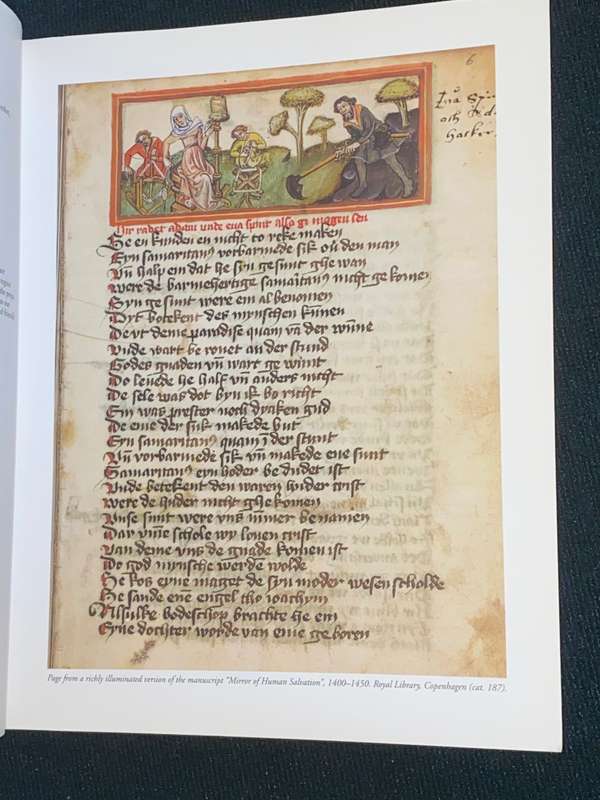 6
Eua Spin
och Ad
hacker
Hir radet adam unde eua sunt also ge mogen sen
He en kunden en nicht to reke maken
Eyn samaritanꝰ vorbarmede sik oū den man
Vn̄ halp em dat he syn gesunt ghe wan
Were de barmehertige samaritanꝰ nicht ge komen
Syn ge sunt were em al benomen
Dyt botekent des mynschen kunnen
De vt deme paradise quam vā der wūne
Vnde wart be rouet an der stund
Godes gnaden vn̄ wart ge wunt
Do leuede he half vn̄ anders nicht
De sele was dot byn ik bo richt
Em was prester noch dyaken gud
De ene der suk makede but
Eyn samaritanꝰ quam ī der stunt
Vn̄ vorbarmede sik vn̄ makede ene sunt
Samaritanꝰ eyn hoder be dudet ist
Vnde betekent den waren huder crist
Were de huder nicht ghe komen
Vnse sunt were vns īmer benamen
Dar vm̄e schole wy louen crist
Van deme vns de gnade komen ist
Do god mynsche werde wolde
He kos eyne maget de syn moder wesen scholde
He sande enē engel tho ioachym
Alsulke bodeschop brachte he em
Eyne dochter worde van eme ge boren
Page from a richly illuminated version of the manuscript "Mirror of Human Salvation", 1400–1450. Royal Library, Copenhagen (cat. 187).